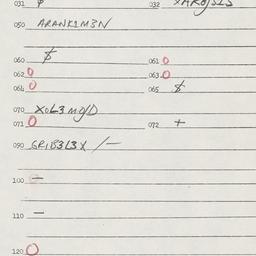 031 $ 032 XAROJSLS
050 ARANK1M3N
060 $ 061 0
062 0 063 0
064 0 065 $
070 X0L3MO/D
071 0 072 +
090 GRIB3L3X /-
100 -
110 -
120 0